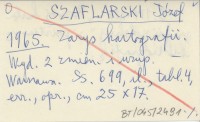 SZAFLARSKI Józef
1965. Zarys kartografii.
Wyd. 2 zmien. i uzup.
Warszawa. Ss. 699, il. tabl. 4,
err., opr., cm 25 × 17.